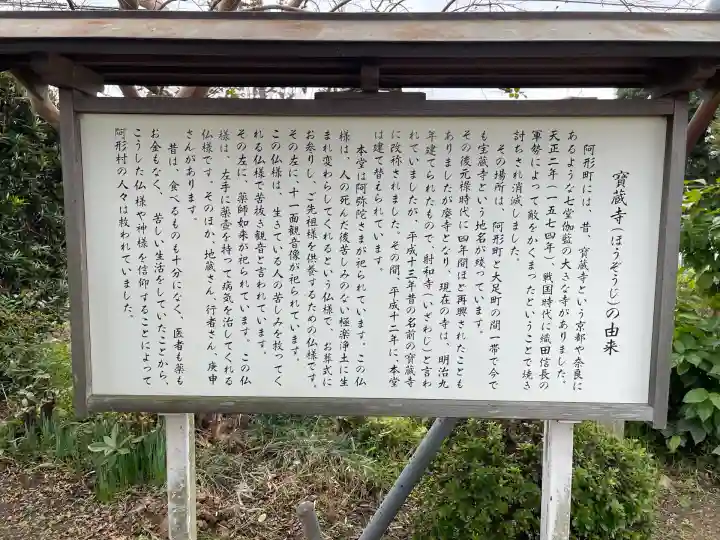 寶蔵寺(ほうぞうじ)の由来
阿形町には、昔、寶蔵寺という京都や奈良に
あるような七堂伽藍の大きな寺がありました。
天正二年(一五七四年)、戦国時代に織田信長の
軍勢によって敵をかくまったということで焼き
討ちされ消滅しました。
その場所は、阿形町と大足町の間一帯で今で
も宝蔵寺という地名が残っています。
その後元禄時代に四年間ほど再興されたことも
ありましたが廃寺となり、現在の寺は、明治九
年建てられたもので、射和寺(いざわじ)と言わ
れていましたが、平成十三年昔の名前の寶蔵寺
に改称されました。その間、平成十二年に、本堂
は建て替えられています。
本堂は阿弥陀さまが祀られています。この仏
様は、人の死んだ後苦しみのない極楽浄土に生
まれ変わらしてくれるという仏様で、お葬式に
お参りし、ご先祖様を供養するための仏様です。
その左に、十一面観音像が祀られています。
この仏様は、生きている人の苦しみを救ってく
れる仏様で苦抜き観音と言われています。
その左に、薬師如来が祀られています。この仏
様は、左手に薬壷を持って病気を治してくれる
仏様です。そのほか、地蔵さん、行者さん、庚申
さんがあります。
昔は、食べるものも十分になく、医者も薬も
お金もなく、苦しい生活をしていたことから、
こうした仏様や神様を信仰することによって
阿形村の人々は救われていました。